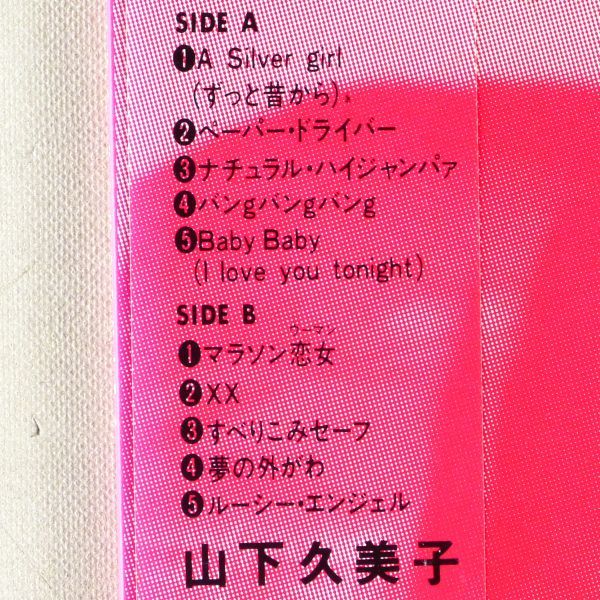 SIDE A
❶A Silver girl
(ずっと昔から)。
❷ペーパー・ドライバー
❸ナチュラル・ハイジャンパァ
❹バングバングバング
❺Baby Baby
(I love you tonight)
SIDE B
ウーマン
❶マラソン恋女
❷XX
❸すべりこみセーフ
❹夢の外がわ
❺ルーシー・エンジェル
山下久美子